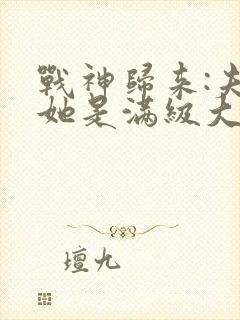 戰神歸来:夫
她是滿級大
壇九